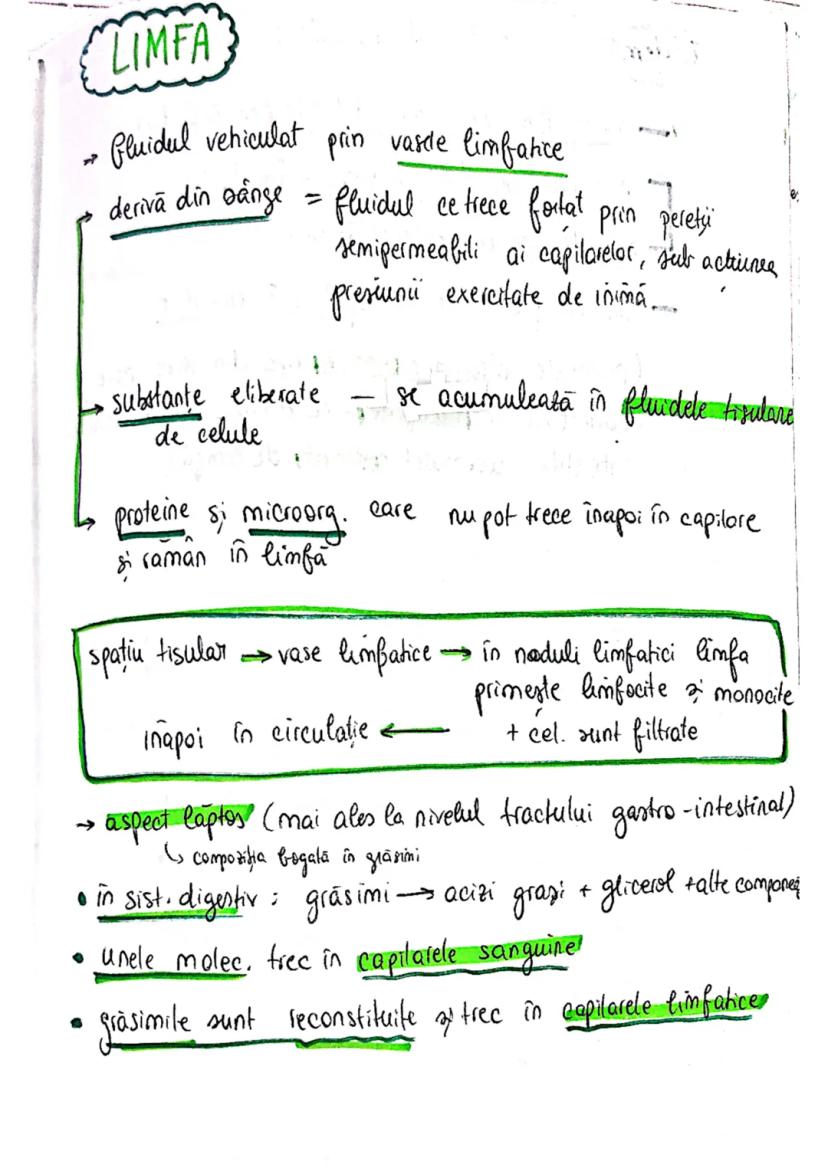 LIMFA
→ fluidul vehiculat prin vasele limfatice
→ derivă din sânge = fluidul ce trece forțat prin pereții
semipermeabili ai capilarelor, sub acțiunea
presiunii exercitate de inimă
→ substanțe eliberate — se acumulează în fluidele tisulare
de celule
→ proteine și microorg. care nu pot trece înapoi în capilare
și rămân în limfă
spațiu tisular → vase limfatice → în noduli limfatici limfa
primește limfocite și monocite
înapoi în circulație ← + cel. sunt filtrate
→ aspect lăptos (mai ales la nivelul tractului gastro-intestinal)
↳ compoziția bogată în grăsimi
• în sist. digestiv : grăsimi → acizi grași + glicerol + alte
• unele molec. trec în capilarele sanguine
• grăsimile sunt reconstituite și trec în capilarele limfatice